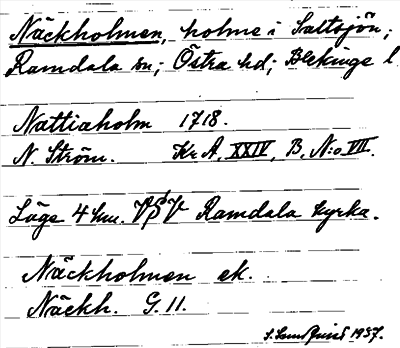 Näckholmen, holme i Saltsjön;
Ramdala sn; Östra hd; Blekinge l.
Nattiaholm 1718.
N. Ström. Kr A, XXIV, B, N:o VII.
Läge 4 km. VSV Ramdala kyrka.
Näckholmen ek.
Näckh. G. 11.
1937.